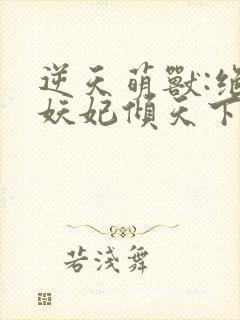 逆天萌獸:絕
妖妃傾天下
若淺舞